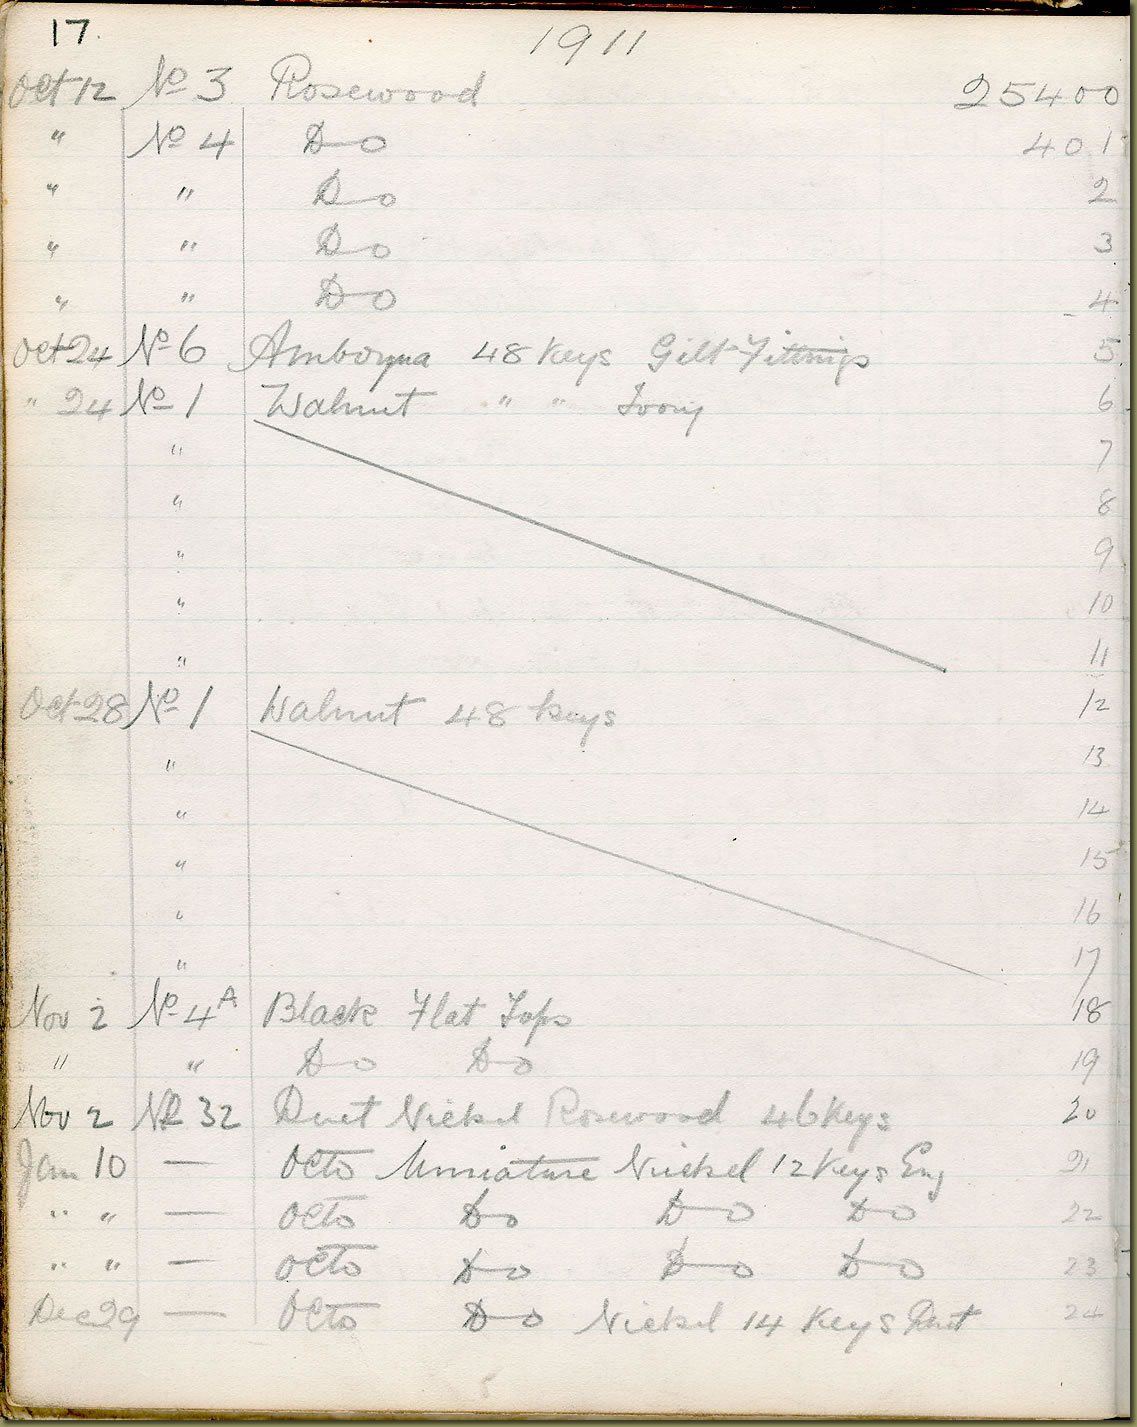 17.
1911
Oct 12 No 3 Rosewood 25400
" No 4 Do 401
" " Do 2
" " Do 3
" " Do 4
Oct 24 No 6 Amboyna 48 Keys Gilt Fittings 5
" 24 No 1 Walnut " " Ivory 6
" 7
" 8
" 9
" 10
" 11
Oct 28 No 1 Walnut 48 keys 12
" 13
" 14
" 15
" 16
" 17
Nov 2 No 4A Black Flat Tops 18
" " Do Do 19
Nov 2 No 32 Duet Nickel Rosewood 46 Keys 20
Jan 10 — Octo Miniature Nickel 12 Keys Eng 21
" " — Octo Do Do Do 22
" " — Octo Do Do Do 23
Dec 29 — Octo Do Nickel 14 Keys Duet 24